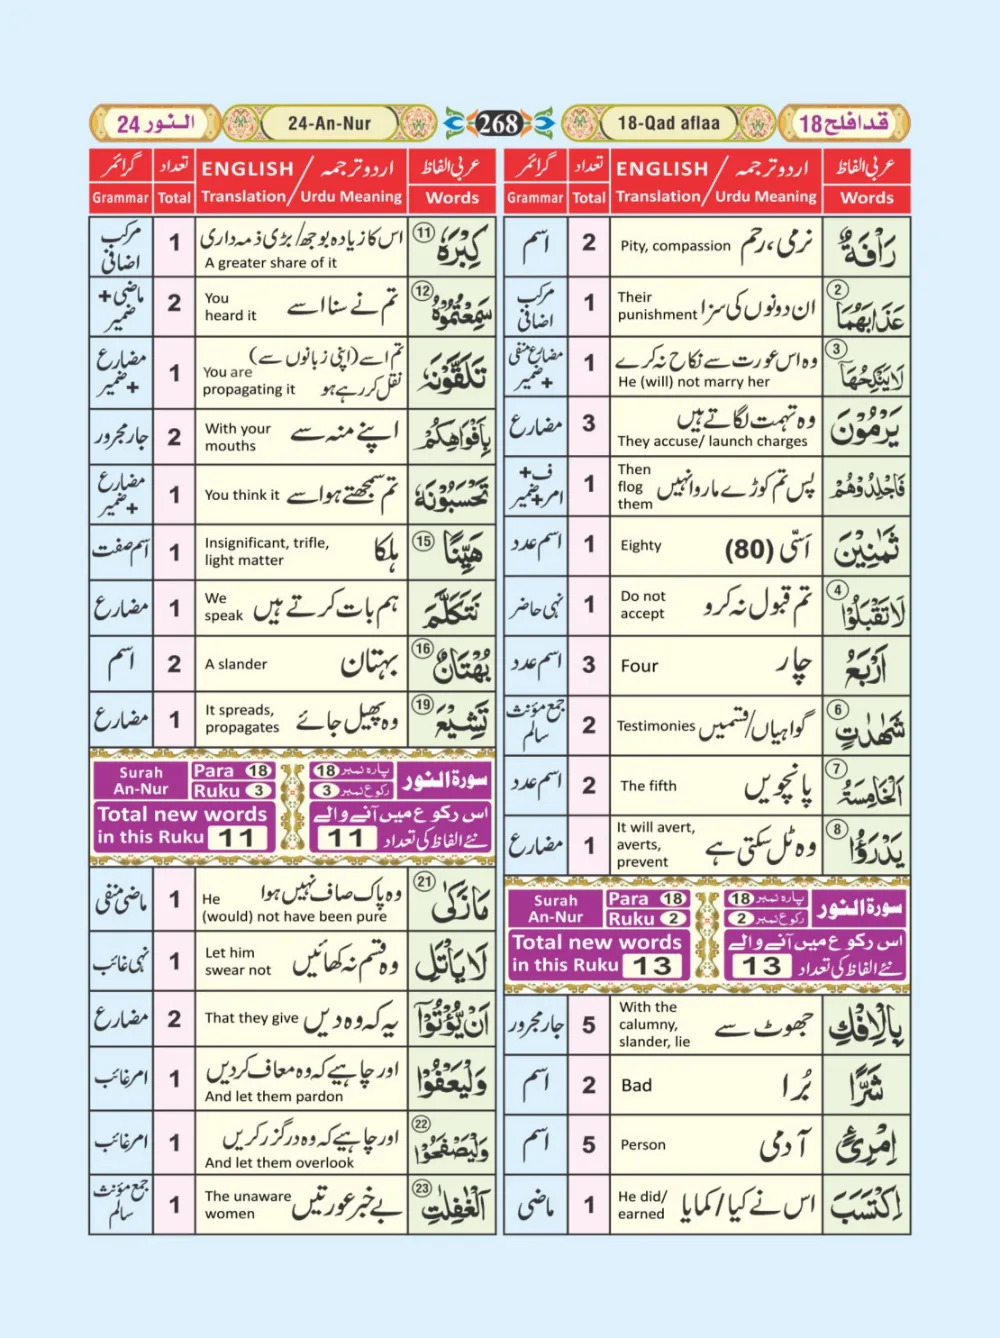 النور 24
24-An-Nur
268
18-Qad aflaa
قد افلح 18
عربی الفاظ
اردو ترجمہ / ENGLISH
تعداد
گرائمر
Words
Translation / Urdu Meaning
Total
Grammar
رَاْفَةٌ
نرمی، رحم
Pity, compassion
2
اسم
② عَذَابَهُمَا
ان دونوں کی سزا
Their
punishment
1
مرکب
اضافی
③ لَا يَنْكِحُهَآ
وہ اس عورت سے نکاح نہ کرے
He (will) not marry her
1
مضارع منفی
+ ضمیر
يَرْمُوْنَ
وہ تہمت لگاتے ہیں
They accuse/ launch charges
3
مضارع
فَاجْلِدُوْهُمْ
پس تم کوڑے مارو انہیں
Then
flog
them
1
ف+
امر+ضمیر
ثَمٰنِيْنَ
اَسّی (80)
Eighty
1
اسم عدد
④ لَا تَقْبَلُوْا
تم قبول نہ کرو
Do not
accept
1
نہی حاضر
اَرْبَعُ
چار
Four
3
اسم عدد
⑥ شَهٰدٰتٍ
گواہیاں/قسمیں
Testimonies
2
جمع مؤنث
سالم
⑦ اَلْخَامِسَةُ
پانچویں
The fifth
2
اسم عدد
⑧ يَدْرَؤُا
وہ ٹل سکتی ہے
It will avert,
averts,
prevent
1
مضارع
Surah
An-Nur
Para 18
Ruku 2
پارہ نمبر 18
رکوع نمبر 2
سورۃ النور
Total new words
in this Ruku 13
اس رکوع میں آنے والے
نئے الفاظ کی تعداد 13
بِالْاِفْكِ
جھوٹ سے
With the
calumny,
slander, lie
5
جار مجرور
شَرًّا
بُرا
Bad
2
اسم
اِمْرِئٍ
آدمی
Person
5
اسم
اِكْتَسَبَ
اس نے کیا/کمایا
He did/
earned
1
ماضی
عربی الفاظ
اردو ترجمہ / ENGLISH
تعداد
گرائمر
Words
Translation / Urdu Meaning
Total
Grammar
⑪ كِبْرَهٗ
اس کا زیادہ بوجھ/بڑی ذمہ داری
A greater share of it
1
مرکب
اضافی
⑫ سَمِعْتُمُوْهُ
تم نے سنا اسے
You
heard it
2
ماضی+
ضمیر
تَلَقَّوْنَهٗ
تم اسے (اپنی زبانوں سے)
نقل کر رہے ہو
You are
propagating it
1
مضارع
+ ضمیر
بِاَفْوَاهِكُمْ
اپنے منہ سے
With your
mouths
2
جار مجرور
تَحْسَبُوْنَهٗ
تم سمجھتے ہو اسے
You think it
1
مضارع
+ ضمیر
⑮ هَيِّنًا
ہلکا
Insignificant, trifle,
light matter
1
اسم صفت
نَتَكَلَّمَ
ہم بات کرتے ہیں
We
speak
1
مضارع
⑯ بُهْتَانٌ
بہتان
A slander
2
اسم
⑲ تَشِيْعَ
وہ پھیل جائے
It spreads,
propagates
1
مضارع
Surah
An-Nur
Para 18
Ruku 3
پارہ نمبر 18
رکوع نمبر 3
سورۃ النور
Total new words
in this Ruku 11
اس رکوع میں آنے والے
نئے الفاظ کی تعداد 11
㉑ مَا زَكٰى
وہ پاک صاف نہیں ہوا
He
(would) not have been pure
1
ماضی منفی
لَا يَاْتَلِ
وہ قسم نہ کھائیں
Let him
swear not
1
نہی غائب
اَنْ يُّؤْتُوْٓا
یہ کہ وہ دیں
That they give
2
مضارع
وَلْيَعْفُوْا
اور چاہیے کہ وہ معاف کر دیں
And let them pardon
1
امر غائب
㉒ وَلْيَصْفَحُوْا
اور چاہیے کہ وہ درگزر کریں
And let them overlook
1
امر غائب
㉓ اَلْغٰفِلٰتِ
بے خبر عورتیں
The unaware
women
1
جمع مؤنث
سالم